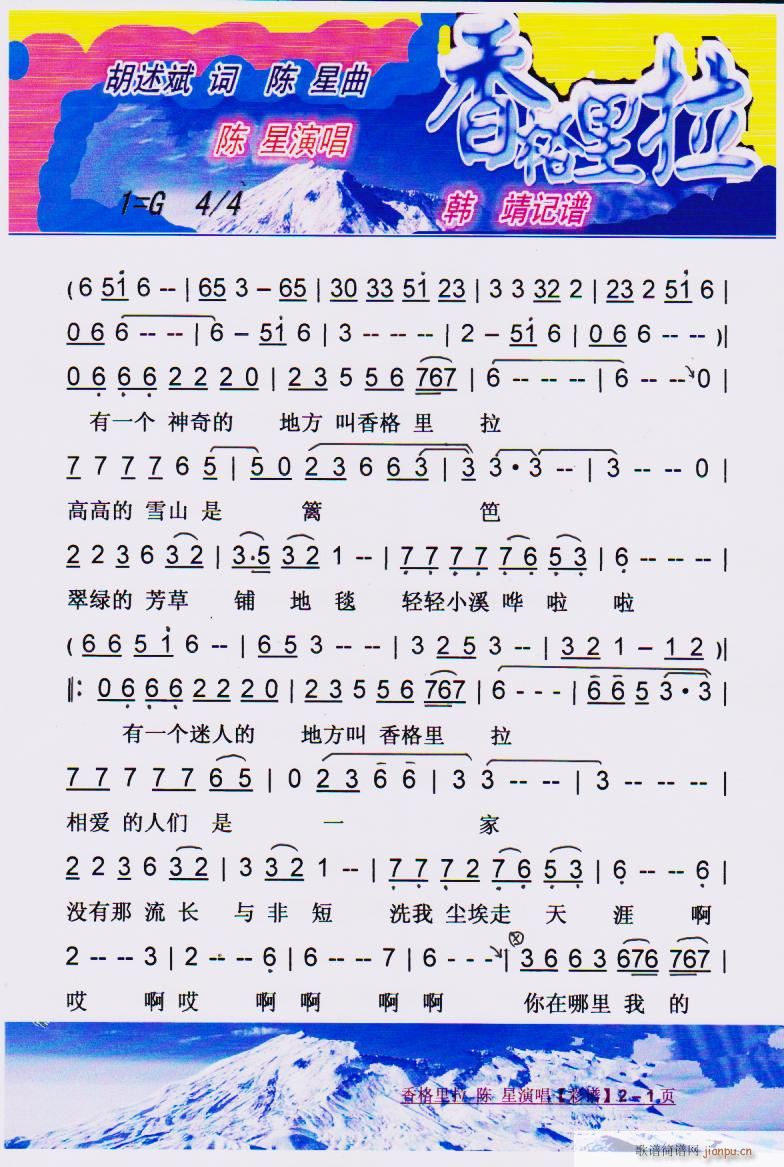 香格里拉
胡述斌 词 陈 星曲
陈 星演唱
1=G 4/4
韩 靖记谱
( 6 51 6 -- | 65 3 – 65 | 30 33 51 23 | 3 3 32 2 | 23 2 51 6 |
0 6 6 -- -- | 6 – 51 6 | 3 -- -- -- | 2 – 51 6 | 0 6 6 -- -- )|
0 6 6 6 2 2 2 0 | 2 3 5 5 6 767 | 6 -- -- -- | 6 -- -- 0 |
有一个 神奇的 地方 叫香格 里 拉
7 7 7 7 6 5 | 5 0 2 3 6 6 3 | 3 3 · 3 -- | 3 -- -- 0 |
高高的 雪山 是 篱 笆
2 2 3 6 3 2 | 3 · 5 3 2 1 -- | 7 7 7 7 7 6 5 3 | 6 -- -- -- |
翠绿的 芳草 铺 地 毯 轻轻小溪 哗 啦 啦
( 6 6 5 1 6 -- | 6 5 3 -- -- | 3 2 5 3 -- | 3 2 1 – 1 2 )|
‖: 0 6 6 6 2 2 2 0 | 2 3 5 5 6 767 | 6 - - - | 6 6 5 3 · 3 |
有一个迷人的 地方叫 香格里 拉
7 7 7 7 7 6 5 | 0 2 3 6 6 | 3 3 -- -- | 3 -- -- -- |
相爱 的人们 是 一 家
2 2 3 6 3 2 | 3 3 2 1 -- | 7 7 7 2 7 6 5 3 | 6 -- -- 6 |
没有那 流 长 与 非 短 洗我 尘埃走 天 涯 啊
2 -- -- 3 | 2 -- -- 6 | 6 -- -- 7 | 6 - - - | 3 6 6 3 676 767 |
哎 啊哎 啊 啊 啊 啊 你在哪里 我 的
香格里拉 陈 星演唱【彩谱】2－1页
歌谱简谱网 jianpu.cn